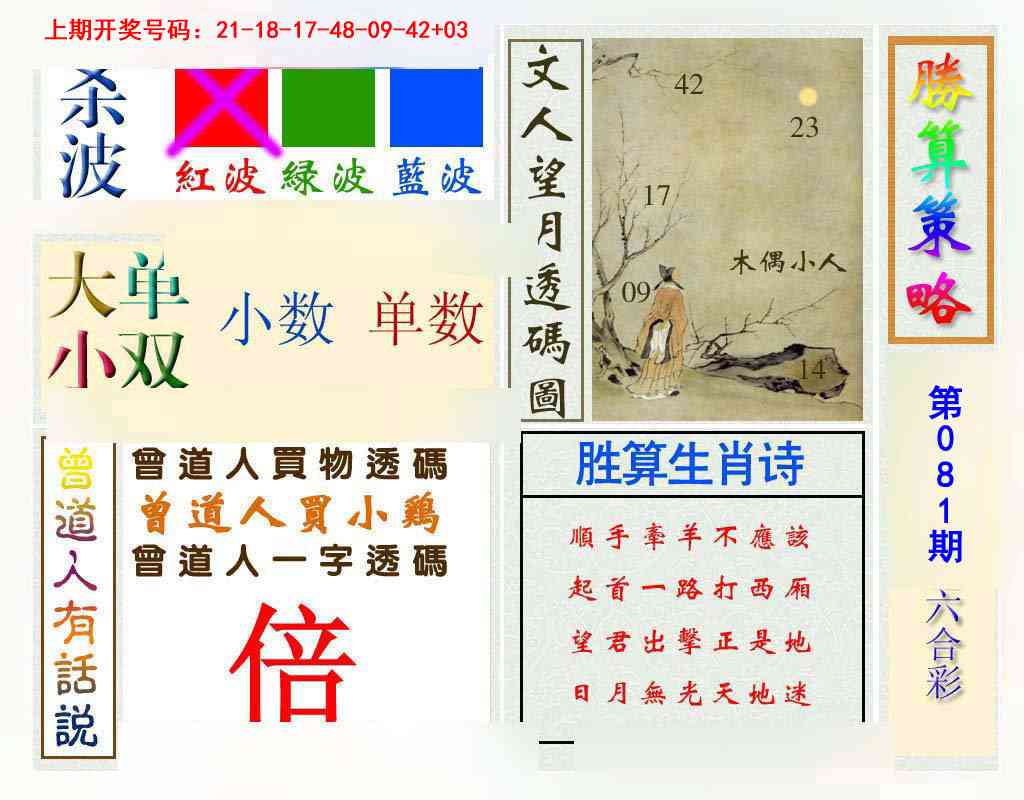 上期开奖号码：21-18-17-48-09-42+03
杀波
紅波 緑波 藍波
大单
小双
小数 单数
文人望月透碼圖
42
23
17
木偶小人
09
14
勝算策略
第081期
六合彩
曾道人有話説
曾道人買物透碼
曾道人買小鷄
曾道人一字透碼
倍
胜算生肖诗
順手牽羊不應該
起首一路打西厢
望君出擊正是地
日月無光天地迷